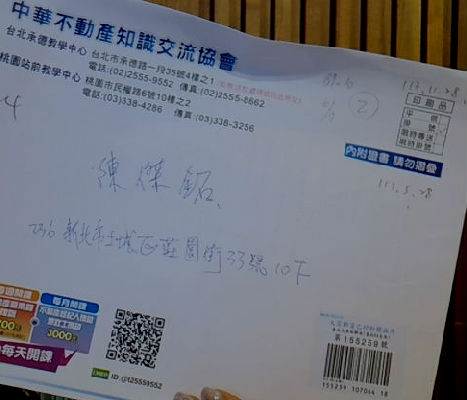 中華不動產知識交流協會
台北承德教學中心 台北市承德路一段35號4樓之1
電話:(02)2555-9552 傳真:(02)2555-8662
桃園站前教學中心 桃園市民權路6號10樓之2
電話:(03)338-4286 傳真:(03)338-3256
111.11.28
2
印刷品
平信
掛號
限時專送
限時掛號
內附證書 請勿摺疊
111.5.28
陳
236 新北市土城區莊園街33號10F
每月開課
不動產經紀人換證
3000元
每天開課
LINE ID:@t25559552
第155259號
155259 107014 18